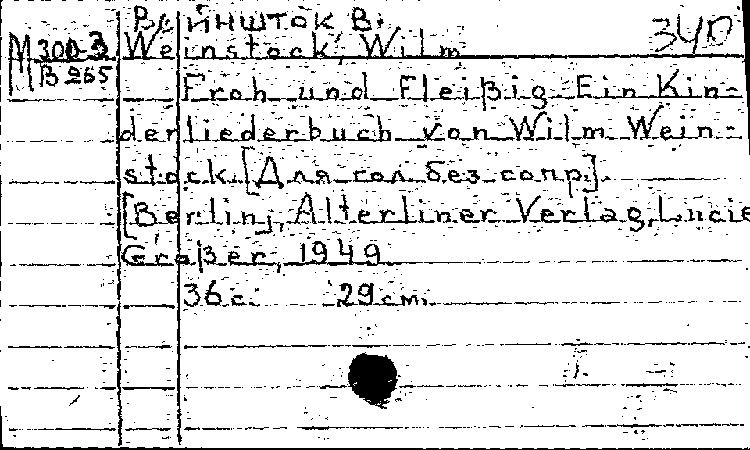 Вейншток В.
340
М 300-3
В 265
Weinstock, Wilm
Froh und Fleißig Ein Kin-
derliederbuch von Wilm Wein-
stock [Для гол. без сопр.].
[Berlin], Alterliner Verlag, Lucie
Großer, 1949
36 с. 29 см.